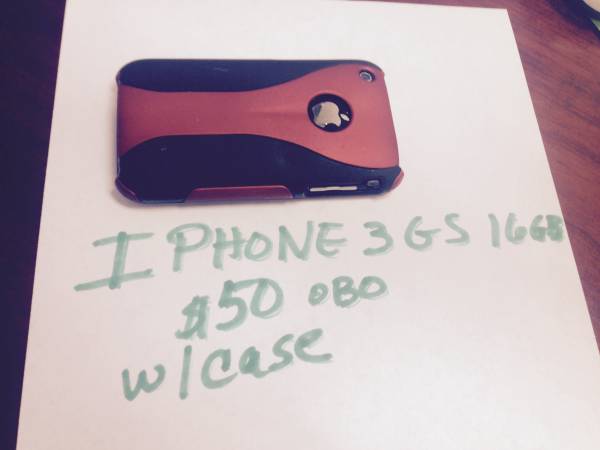 I PHONE 3GS 16GB
$50 OBO
w/case